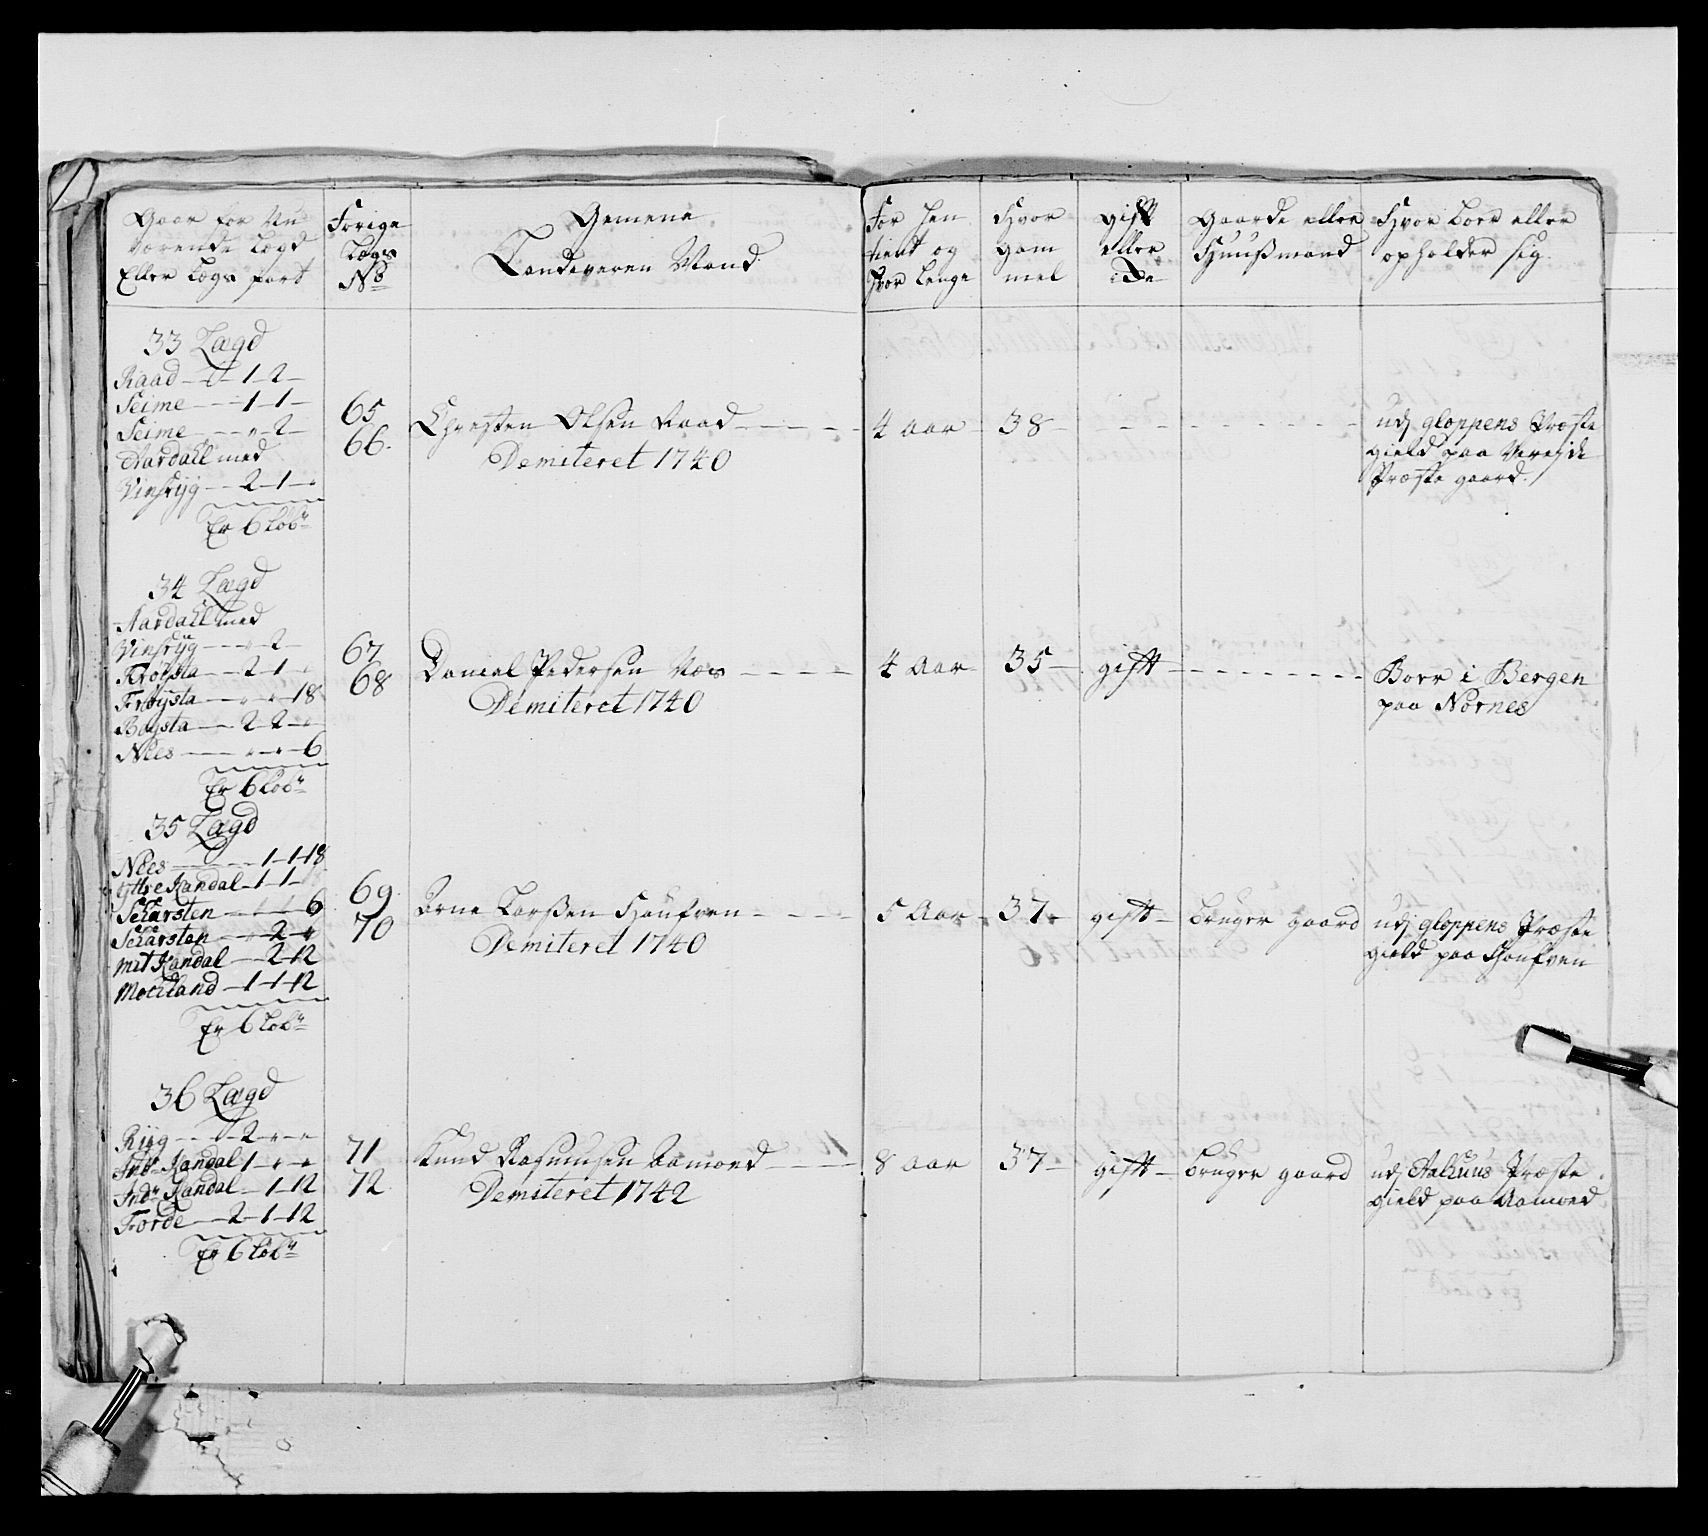 Gaar for Nu
Værende Lægd
Eller Lægs part
Forige
Lægs
No
Gemene
Landeværn Mand
For hen
tient og
hvor lenge
Hvor
Gam
mel
gift
eller
Ei
Gaarde eller
Huusmand
Hvor boer eller
opholder sig
33 Lægd
Raad - - 1 - 2 -
Seime - - 1 - 1 -
Seime - - " - 2 -
Aardall med
Vinsryg - - 2 - 1 - "
Er 6 Løb
65
66.
Christen Olsen Raad
Demiteret 1740
4 Aar
38
udj gloppens Præste
gield paa Vereide
Præste gaard.
34 Lægd
Aardall med
Vinsryg - - " - 2 -
Frøysta - - 2 - 1 - "
Frøysta - - " - " - 18
Bøysta - - 2 - 2 - "
Nees - - " - " - 6
Er 6 Løb
67
68
Daniel Pedersen Næs
Demiteret 1740
4 Aar
35
gift
Boer i Bergen
paa Nørnes
35 Lægd
Nees - - 1 - 1 - 18
Yttre Kandal - 1 - 1 -
Scharsten - - " - " - 6
Scharsten - - " - 2 - "
Mit Kandal - - 2 - 12
Moritland - 1 - 1 - 12
Er 6 Løb
69
70
Arne Larsen Haufven
Demiteret 1740
5 Aar
37
gift
bruger gaard
udj gloppens Præste
gield paa Haufven
36 Lægd
Ryg - - 2 - " - "
Indr Kandal 1 - " - "
Indr Kandal - 1 - 12
Förde - - 2 - 1 - 12
Er 6 Løb
71
72
Knud Rasmusen Aamoed
Demiteret 1742
8 Aar
37
gift
bruger gaard
udj Aalhuus Præste
gield paa Aamoed